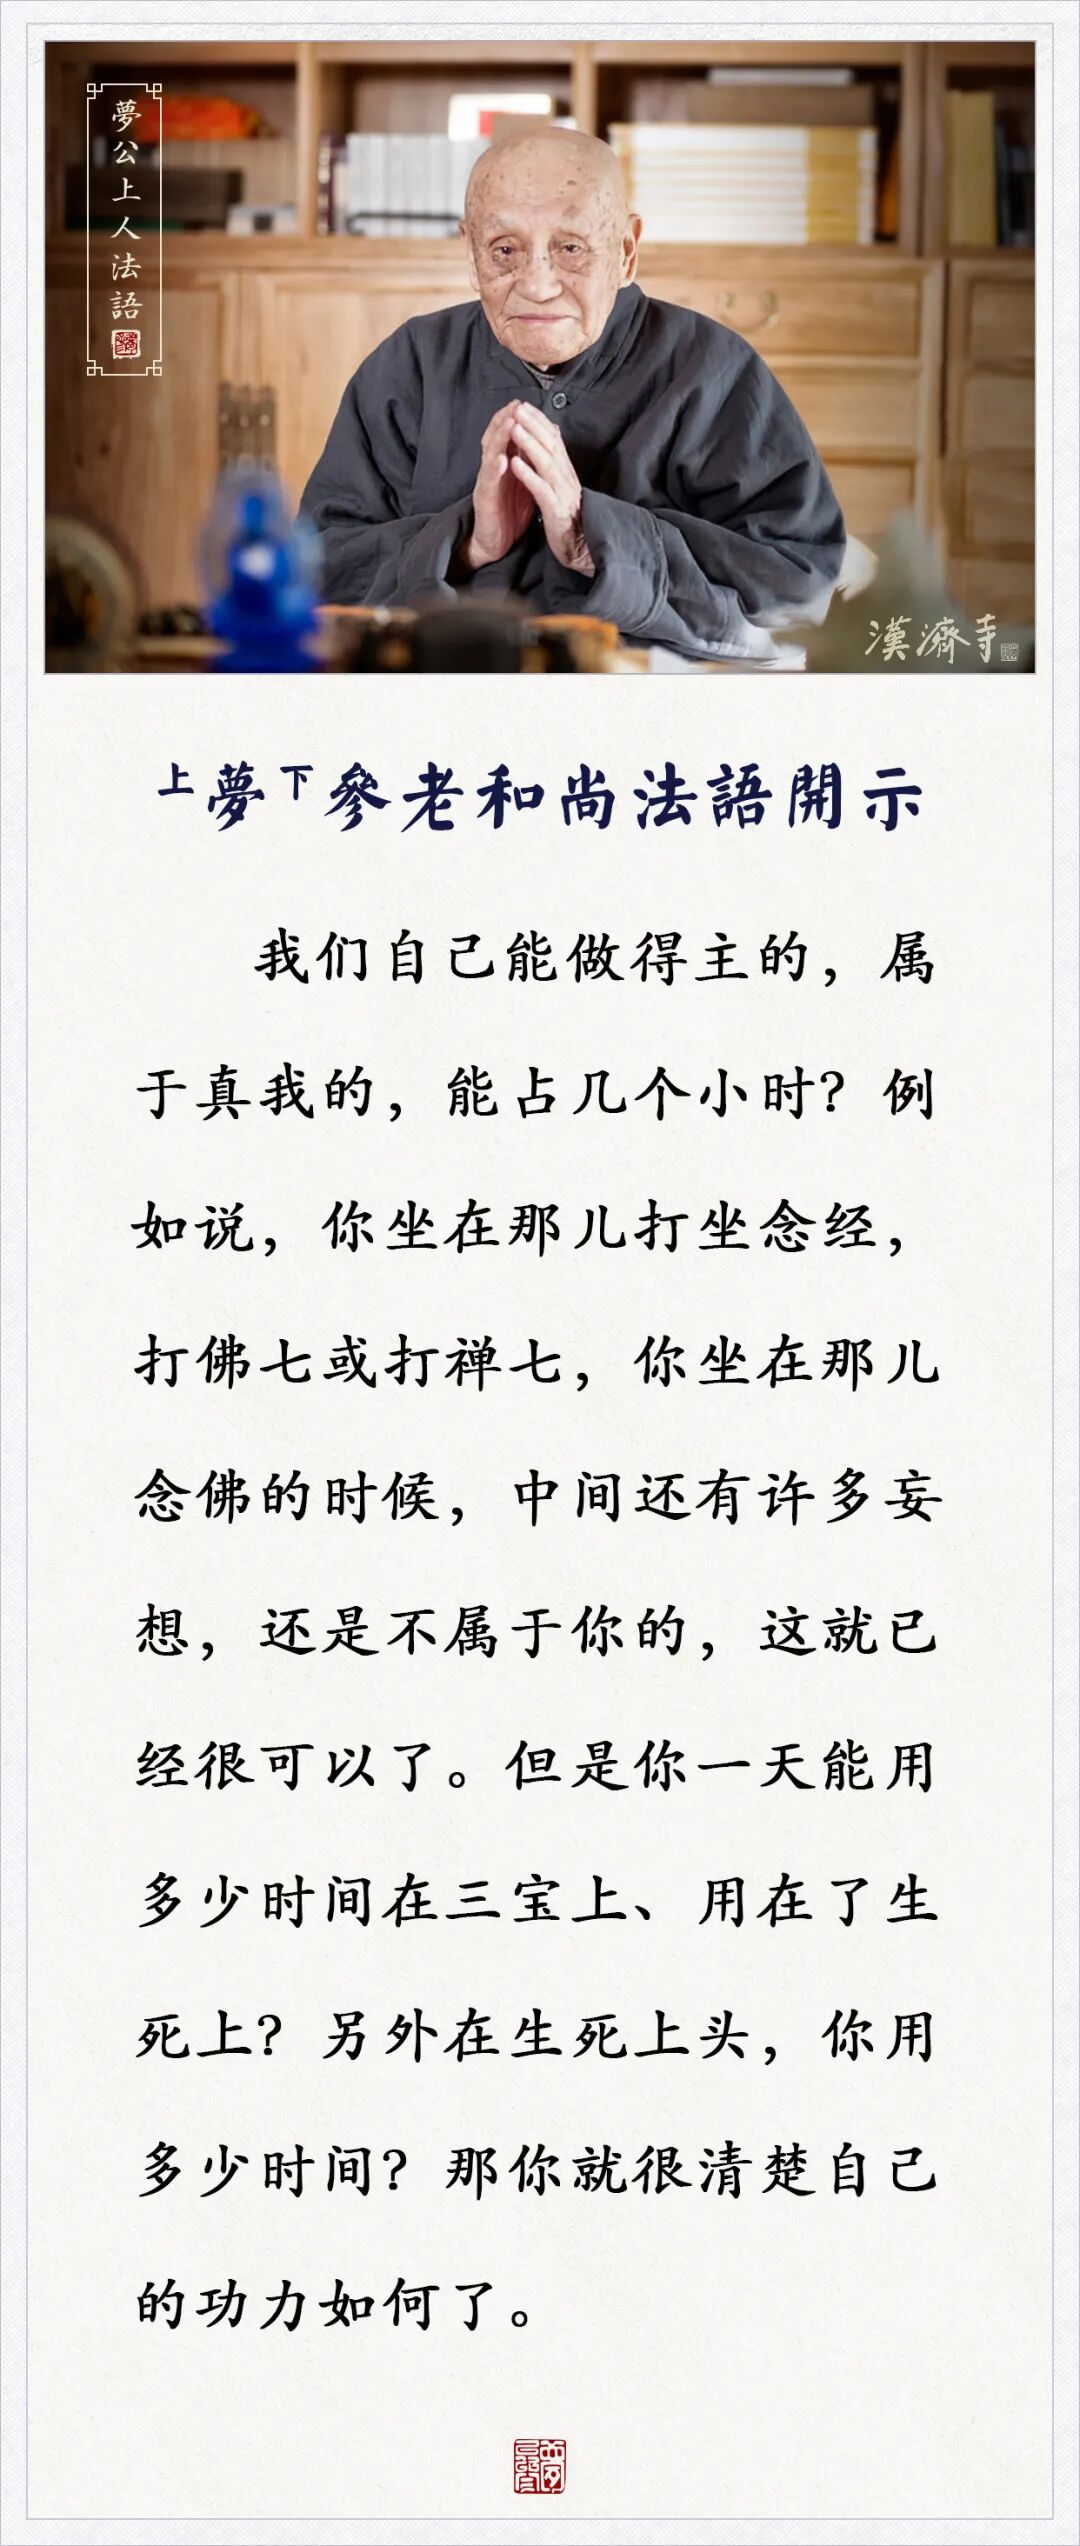 夢公上人法語
漢濟寺
上夢下參老和尚法語開示
我们自己能做得主的，属
于真我的，能占几个小时？例
如说，你坐在那儿打坐念经，
打佛七或打禅七，你坐在那儿
念佛的时候，中间还有许多妄
想，还是不属于你的，这就已
经很可以了。但是你一天能用
多少时间在三宝上、用在了生
死上？另外在生死上头，你用
多少时间？那你就很清楚自己
的功力如何了。